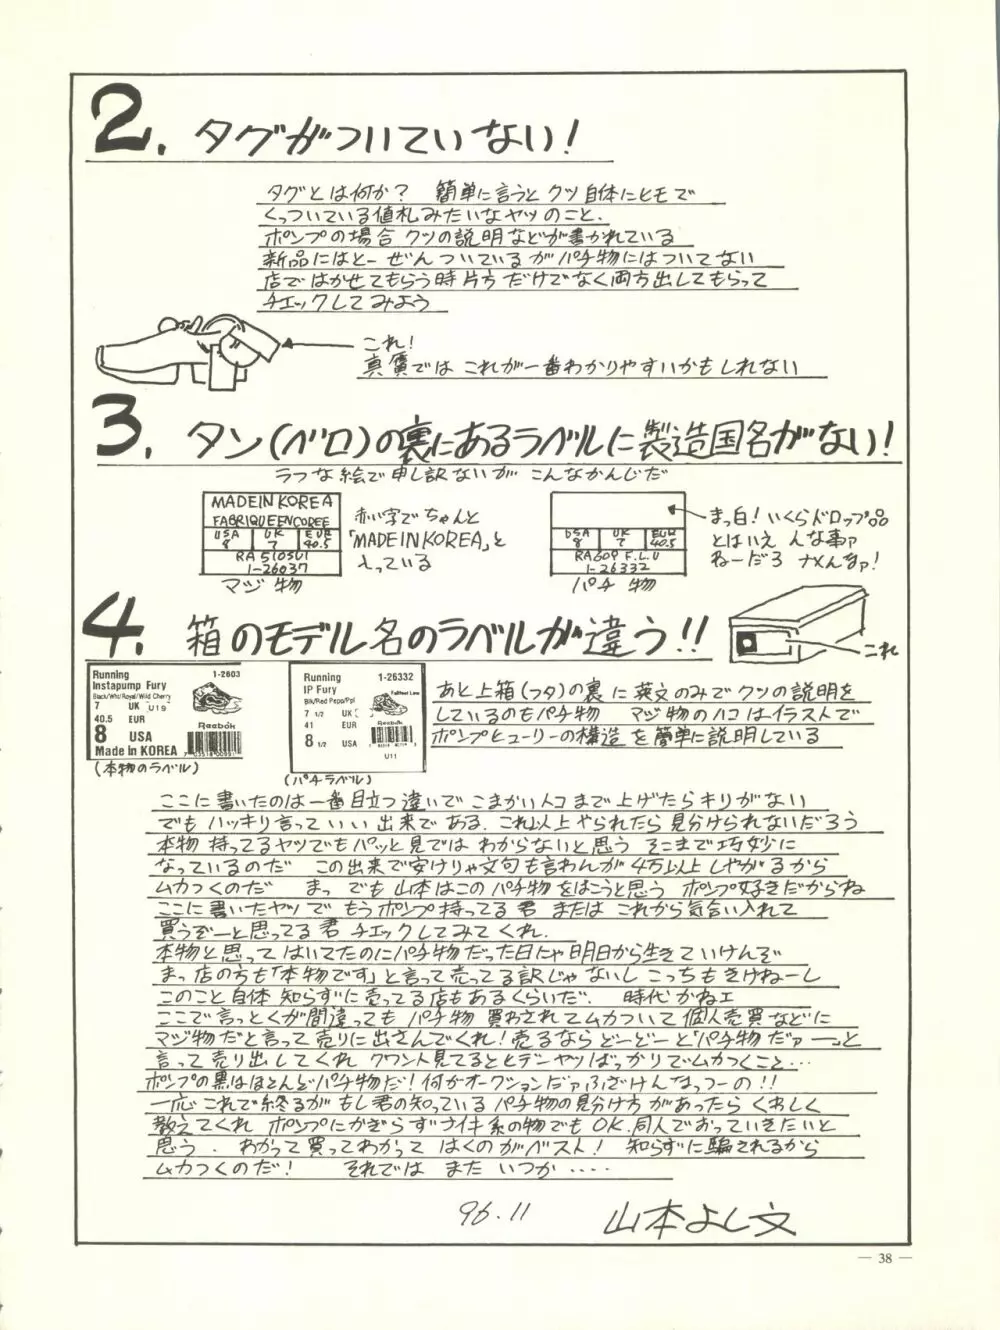 2. タグがついていない!
タグとは何か? 簡単に言うと クツ自体にヒモで
くっついている値札みたいなヤツのこと.
ポンプの場合 クツの説明などが書かれている
新品にはとーぜんついているがパチ物にはついてない
店ではかせてもらう時片方だけでなく両方出してもらって
チェックしてみよう
これ!
真贋では これが一番わかりやすいかもしれない
3. タン(ベロ)の裏にあるラベルに製造国名がない!
ラフな絵で申し訳ないが こんなかんじだ
MADE IN KOREA
FABRIQUE EN COREE
USA 8 UK 7 EUR 40.5
RA 510501
1-26037
マジ物
赤い字でちゃんと
「MADE IN KOREA」と
入っている
USA 8 UK 7 EUR 40.5
RA609 F.L.U
1-26332
パチ物
まっ白! いくらドロップ品
とはいえ んな事ァ
ねーだろ ナメんなァ!
4. 箱のモデル名のラベルが違う!!
これ
Running 1-2603
Instapump Fury
Black/Wht/Royal/Wild Cherry
7 UK U19
40.5 EUR
8 USA
Reebok
Made in KOREA
(本物のラベル)
Running 1-26332
IP Fury
Blk/Red Pepp/Ppl
7 1/2 UK
41 EUR
8 1/2 USA
U11
(パチラベル)
あと上箱(フタ)の裏に英文のみでクツの説明を
しているのもパチ物 マジ物のハコはイラストで
ポンプヒューリーの構造を簡単に説明している
ここに書いたのは一番目立つ違いで こまかいトコまで上げたらキリがない
でもハッキリ言っていい出来である. これ以上やられたら見分けられないだろう
本物持ってるヤツでもパッと見ではわからないと思う そこまで巧妙に
なっているのだ この出来で安けりゃ文句も言わんが4万以上しやがるから
ムカつくのだ まっ でも山本はこのパチ物をはこうと思う ポンプ好きだからね
ここに書いたヤツで もうポンプ持ってる君 または これから気合い入れて
買うぞーと思ってる君 チェックしてみてくれ.
本物と思ってはいてたのにパチ物だった日にゃ明日から生きていけんぞ
まっ店の方も「本物です」と言って売ってる訳じゃないし こっちもきけねーし
このこと自体知らずに売ってる店もあるくらいだ. 時代かねェ
ここで言っとくが間違っても パチ物買わされてムカついて個人売買などに
マジ物だと言って売りに出さんでくれ! 売るならどーどーと「パチ物だァー」と
言って売り出してくれ クワント見てるととデーヤツばっかりでムカつくこと…
ポンプの黒はほとんどパチ物だ! 何がオークションだァふざけんなっつーの!!
一応これで終るが もし君の知っているパチ物の見分け方があったらくわしく
教えてくれ ポンプにかぎらずナイキ系の物でもOK. 同人でおっていきたいと
思う. わかって買ってわかって はくのがベスト! 知らずに騙されるから
ムカつくのだ! それでは また いつか ‥‥
96.11 山本よし文
— 38 —